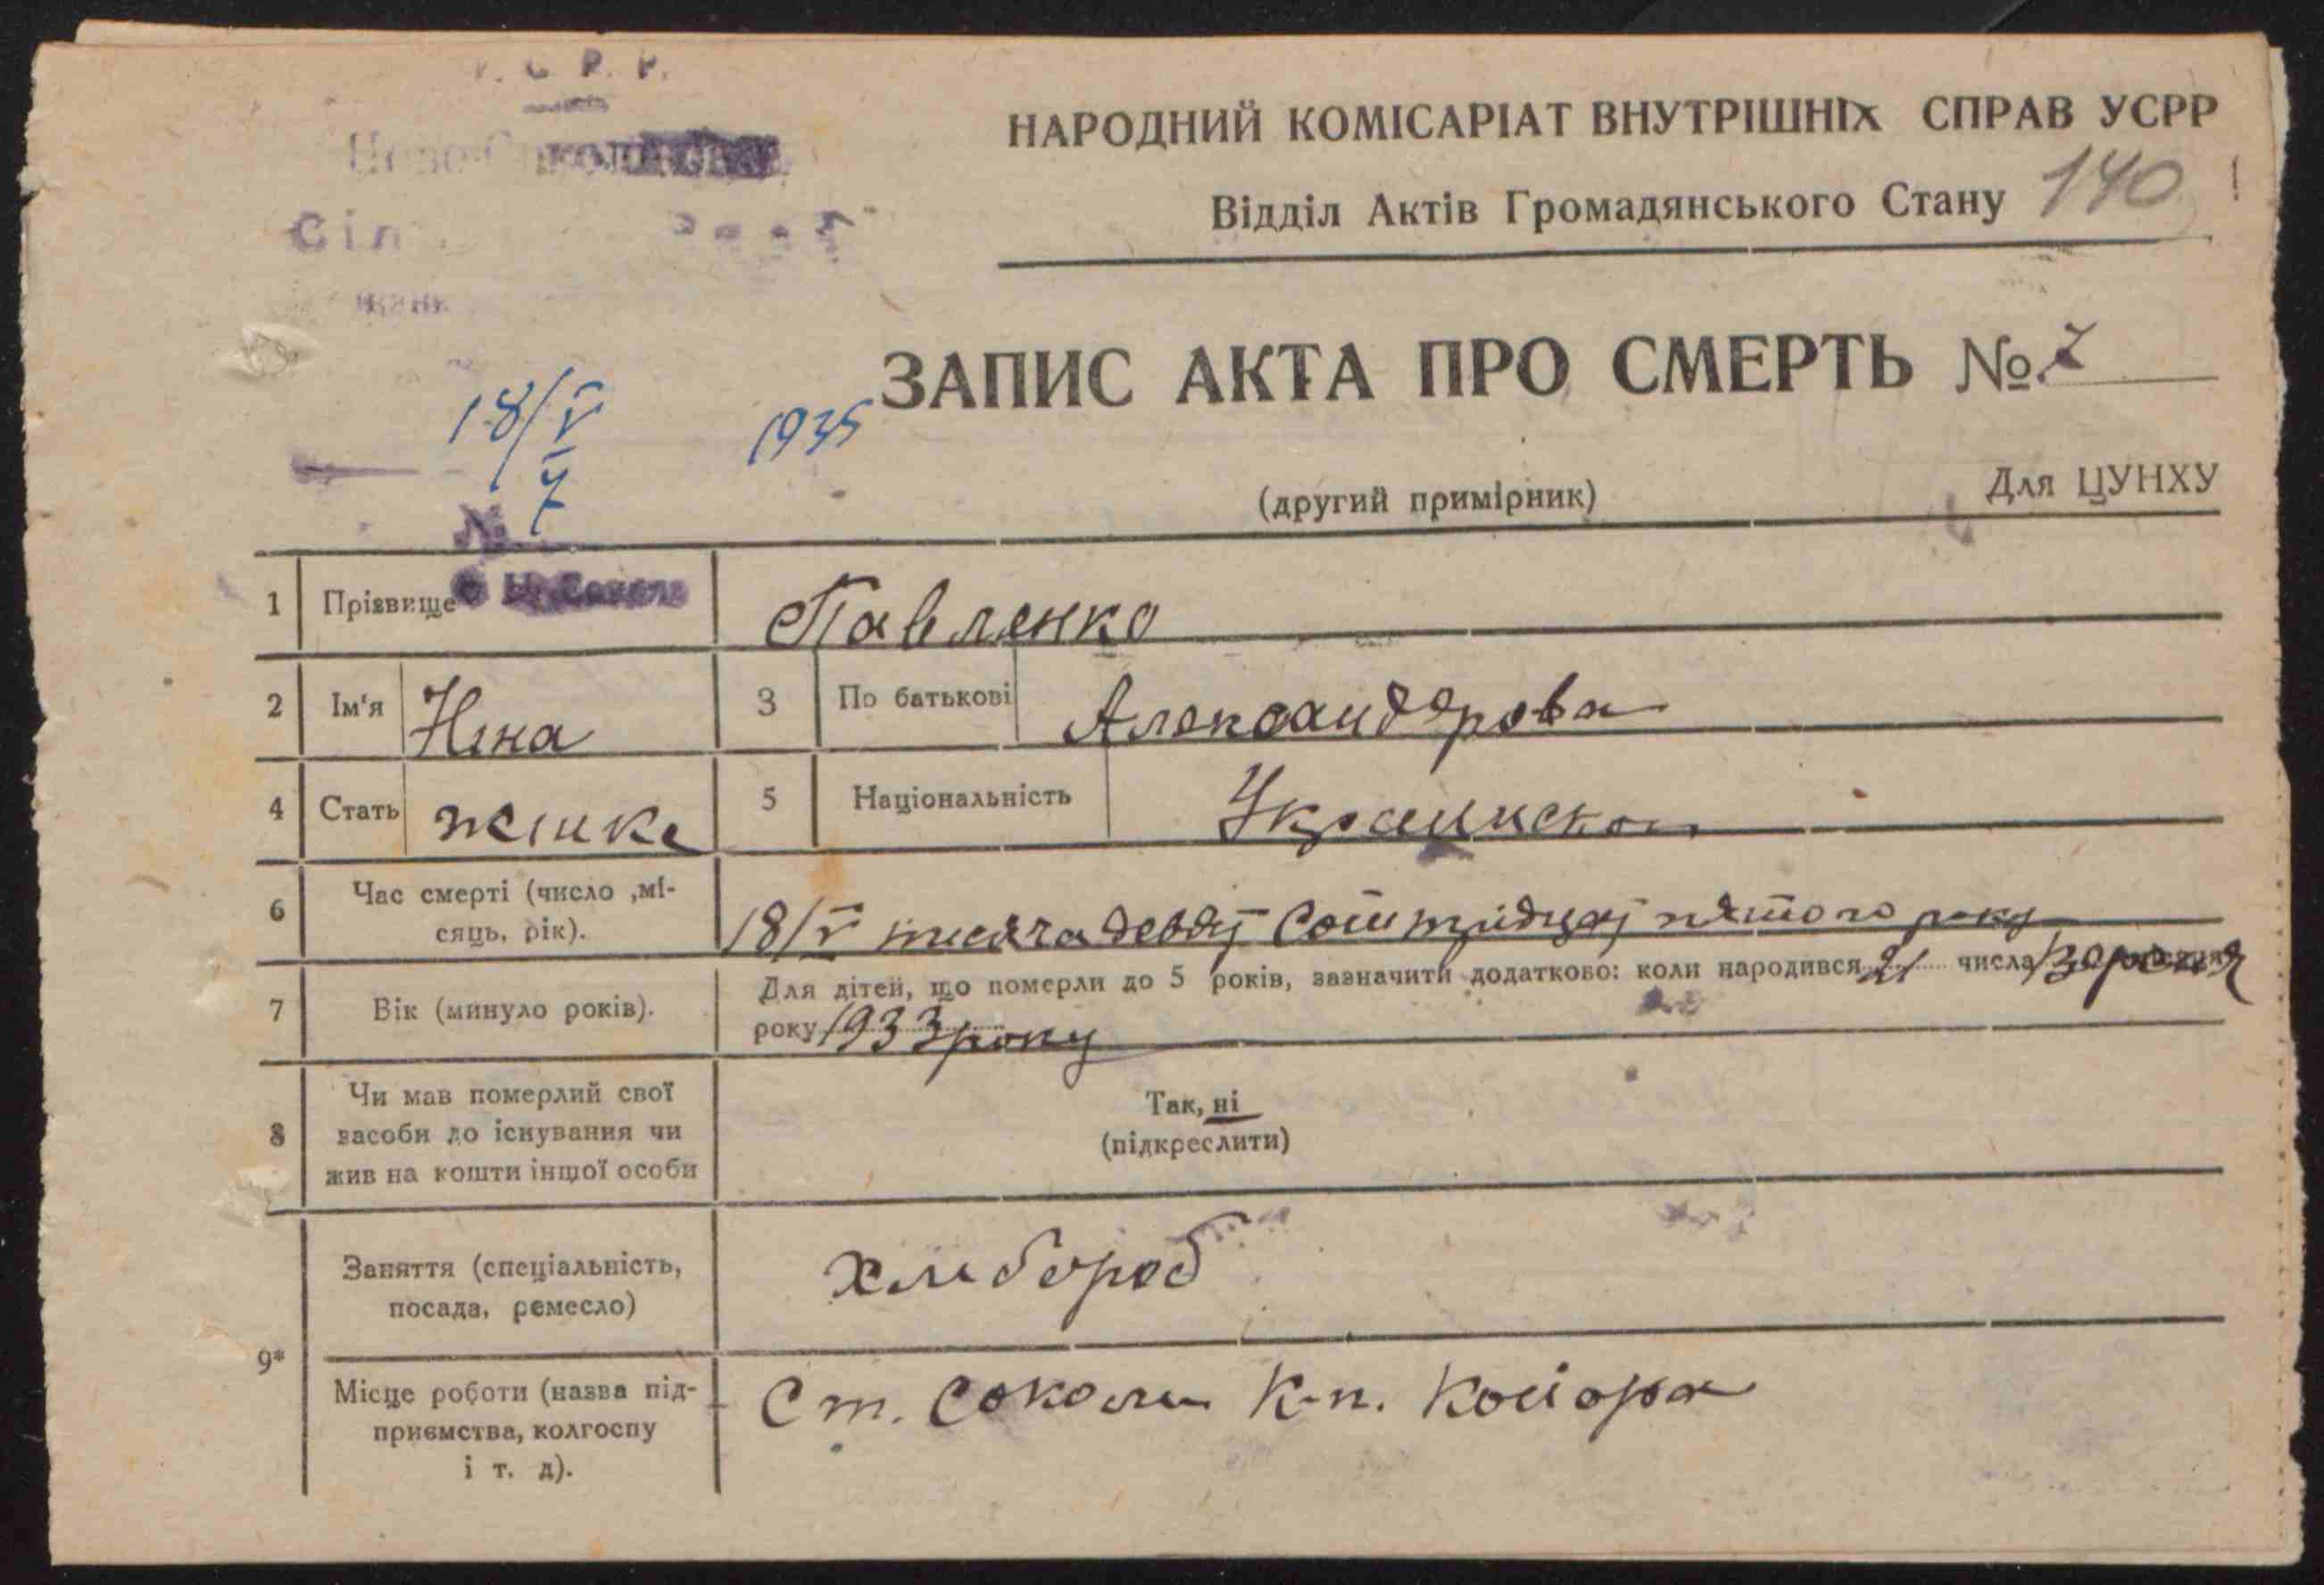 У. С. Р. Р.
Сіл
НАРОДНИЙ КОМІСАРІАТ ВНУТРІШНІХ СПРАВ УСРР
Відділ Актів Громадянського Стану 140
ЗАПИС АКТА ПРО СМЕРТЬ № 7
18/V 1935
7
№
(другий примірник) Для ЦУНХУ
1 Прізвище Павленко
2 Ім'я Нина 3 По батькові Александрова
4 Стать жінка 5 Національність Украинская
6 Час смерті (число ,мі-
сяць, рік).
18/V тисяча девять сот тридцять пятого року
7 Вік (минуло років).
Для дітей, що померли до 5 років, зазначити додатково: коли народився 21 числа
року 1933 року
8 Чи мав померлий свої
засоби до існування чи
жив на кошти іншої особи
Так, ні
(підкреслити)
9*
Заняття (спеціальність,
посада, ремесло)
хлебороб
Місце роботи (назва під-
приємства, колгоспу
і т. д).
Ст. Соколи К-п. Косіора